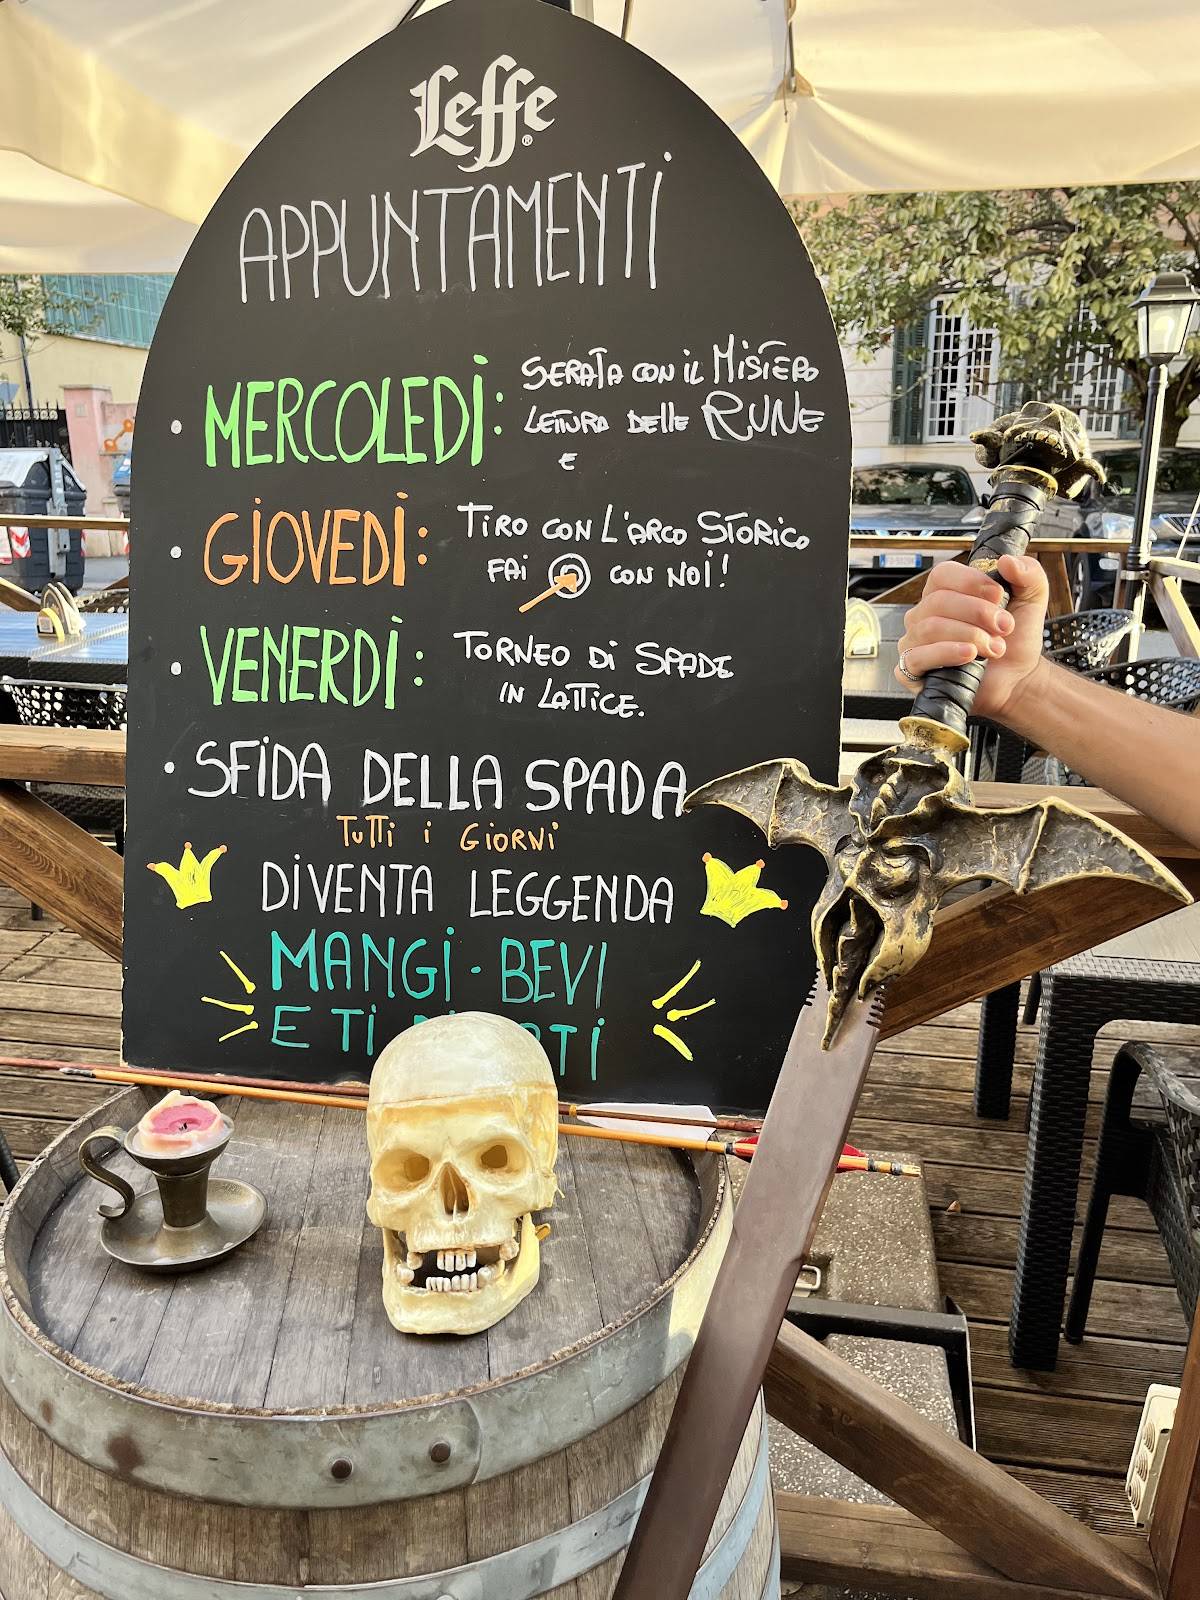 Leffe®
APPUNTAMENTI
• MERCOLEDÌ: SERATA CON IL MISTERO
LETTURA DELLE RUNE
E
• GIOVEDÌ: TIRO CON L'ARCO STORICO
FAI CON NOI!
• VENERDÌ: TORNEO DI SPADE
IN LATTICE.
• SFIDA DELLA SPADA
TUTTI I GIORNI
DIVENTA LEGGENDA
MANGI - BEVI
E TI